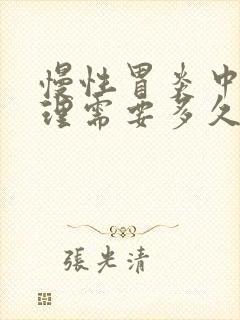 慢性胃炎中
理需要多久
張光清